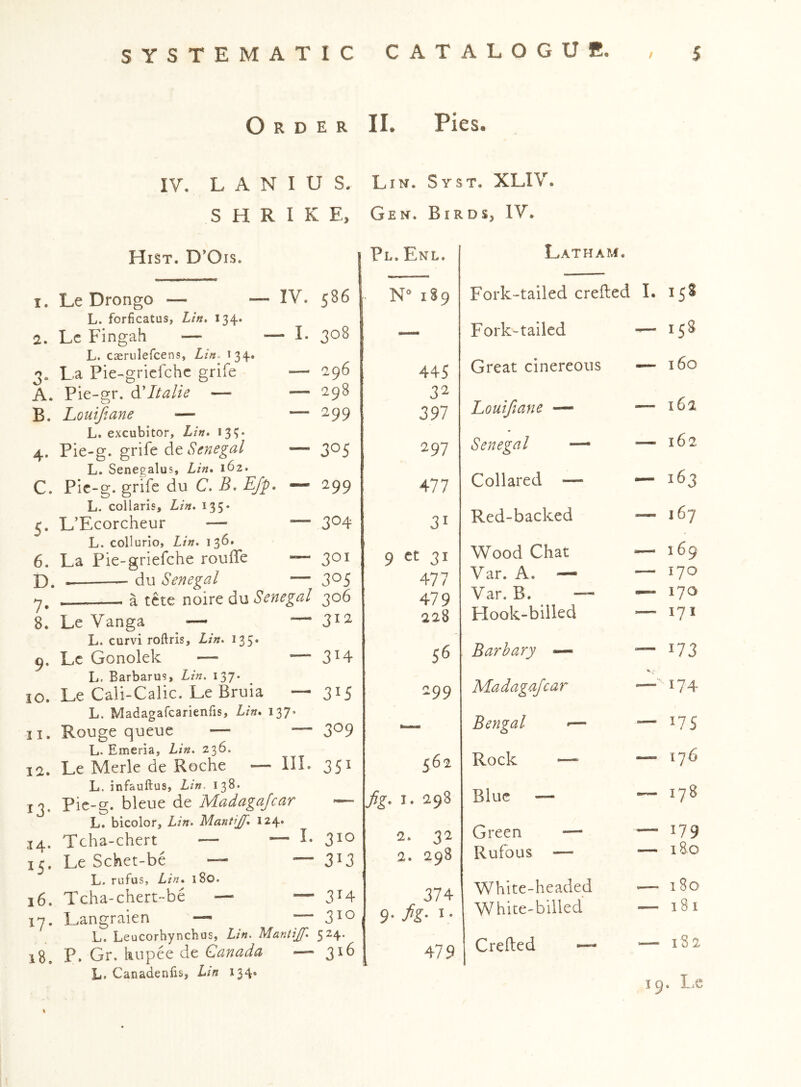 SYSTEMATIC CATALOGUE. 5
ORDER II. Pies.
IV. LANIUS. LIN. SYST. XLIV.
SHRIKE, GEN. BIRDS, IV.
HIST. D'OIS. PL. ENL. LATHAM.
1. Le Drongo — — IV. 586 N° 189 Fork-tailed crefted I. 158
L. forficatus, Lin. 134.
2. Le Fingah — — I. 308 — Fork-tailed — 158
L. cærulefcens, Lin. 134.
3. La Pie-griefche grife — 296 445 Great cinereous — 160
A. Pie-gr. d'Italie — — 298 32
B. Louifiane — — 299 397 Louifiane — — 162
L. excubitor, Lin. 135.
4. Pie-g. grife de Senegal — 305 297 Senegal — — 162
L. Senegalus, Lin. 162.
C. Pie-g. grife du C. B. Efp. — 299 477 Collared — — 163
L. collaris, Lin. 135.
5. L'Ecorcheur — — 304 31 Red-backed — 167
L. collurio, Lin. 136.
6. La Pie-griefche rouffe — 301 9 et 31 Wood Chat — 169
D. ——— du Senegal — 305 477 Var. A. — — 170
7. ——— à tête noire du Senegal 306 479 Var. B. — — 170
8. Le Vanga — — 312 228 Hook-billed — 171
L. curvi roftris, Lin. 135.
9. Le Gonolek — — 314 56 Barbary — — 173
L. Barbarus, Lin. 137.
10. Le Cali-Calic. Le Bruia — 315 299 Madagafcar — 174
L. Madagafcarienfis, Lin. 137.
11. Rouge queue — — 309 — Bengal — — 175
L. Emeria, Lin. 236.
12. Le Merle de Roche — III. 351 562 Rock — — 176
L. infauftus, Lin. 138.
13. Pie-g. bleue de Madagafcar — fig. 1. 298 Blue — — 178
L. bicolor, Lin. Mantiff. 124.
14. Tcha-chert — — I. 310 2. 32 Green — — 179
15. Le Schet-bé — — 313 2. 298 Rufous — — 180
L. rufus, Lin. 180.
16. Tcha-chert-bé — — 314 374 White-headed — 180
17. Langraien — — 310 9. fig. 1. White-billed — 181
L. Leucorhynchus, Lin. Mantiff. 524.
18. P. Gr. hupée de Canada — 316 479 Crefted — — 182
L. Canadenfis, Lin 134.
19. Le